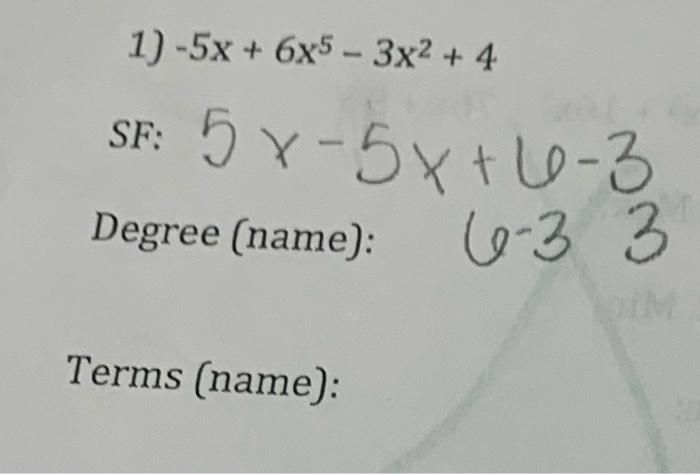 1) -5x + 6x⁵ – 3x² + 4
SF: 5x-5x+6-3
Degree (name): 6-3 3
Terms (name):